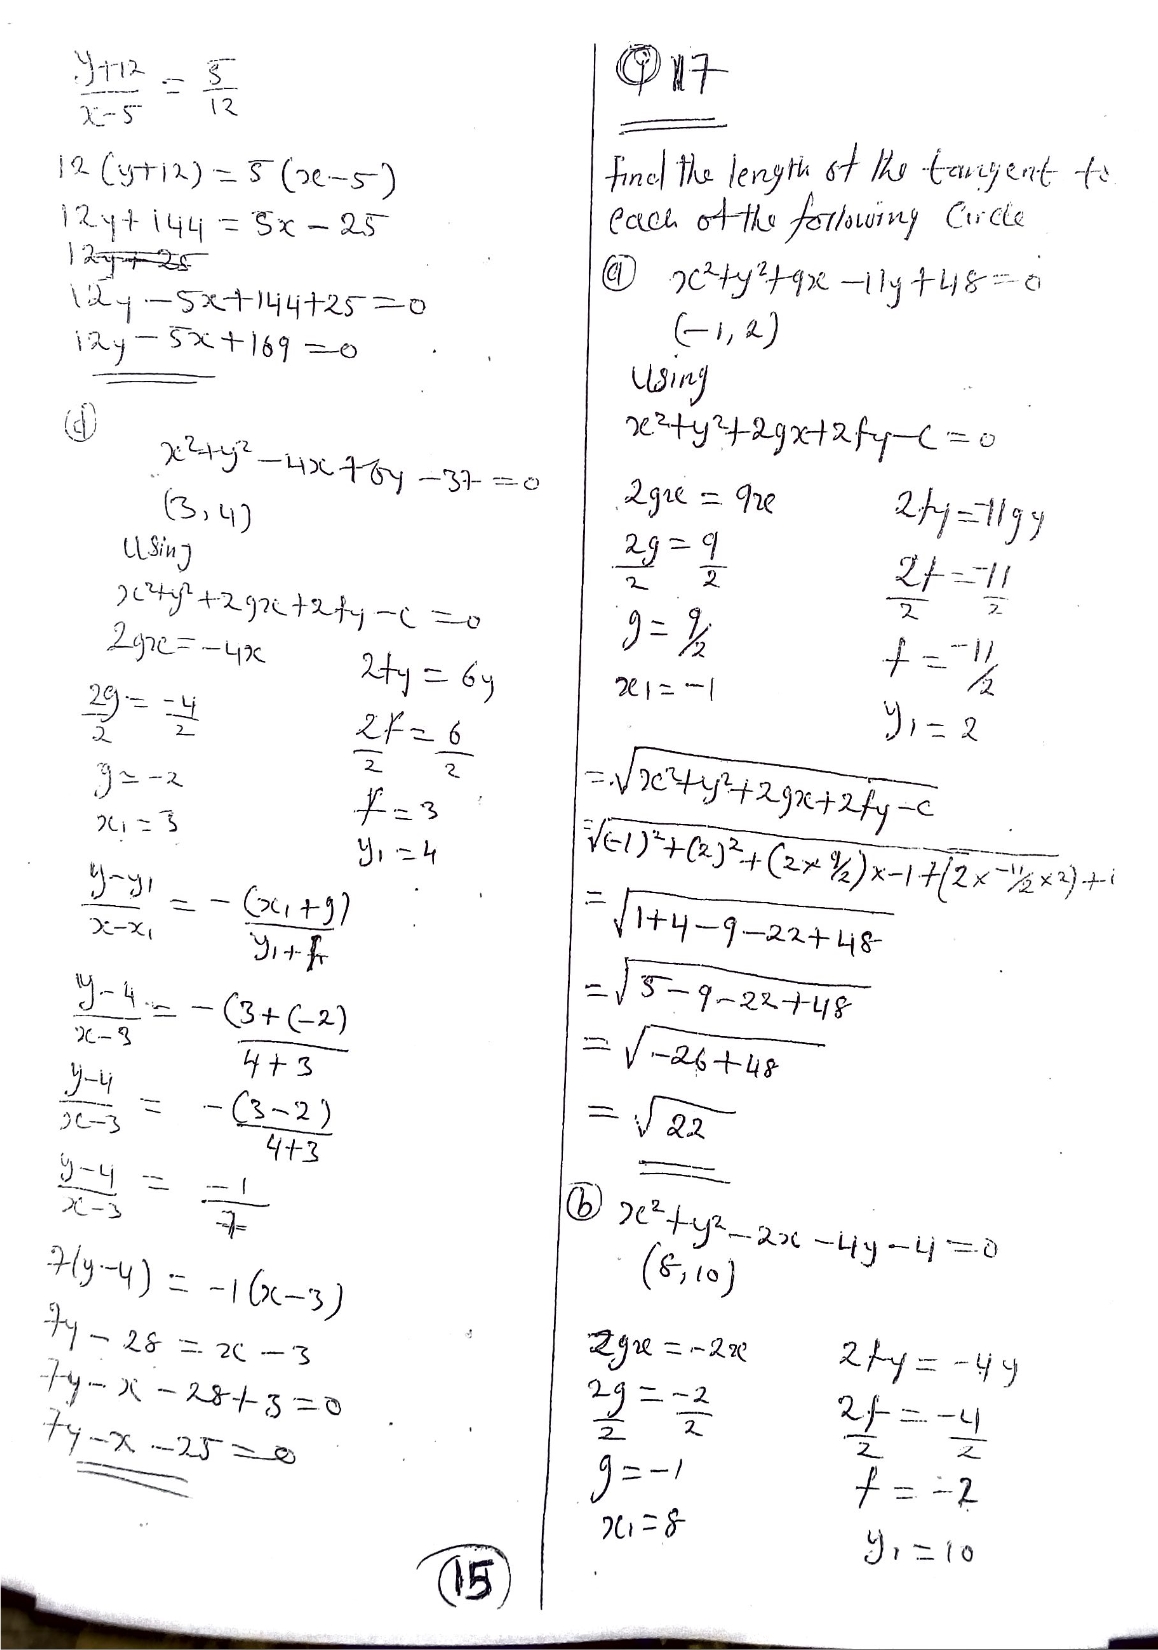 y+12/x-5 = 5/12
12(y+12) = 5(x-5)
12y+144 = 5x - 25
12y+25
12y - 5x+144+25=0
12y - 5x+169=0
(d)
x²+y²-4x+6y-37=0
(3,4)
Using
x²+y²+2gx+2fy-c=0
2gx=-4x 2fy=6y
2g/2 = -4/2 2f/2 = 6/2
g=-2 f=3
x₁=3 y₁=4
y-y₁/x-x₁ = -(x₁+g)/y₁+f
y-4/x-3 = -(3+(-2)/4+3
y-4/x-3 = -(3-2)/4+3
y-4/x-3 = -1/7
7(y-4) = -1(x-3)
7y-28 = x-3
7y-x-28+3=0
7y-x-25=0
15
Q 17
find the length of the tangent to
each of the following Circle
(a) x²+y²+9x-11y+48=0
(-1,2)
Using
x²+y²+2gx+2fy-c=0
2gx=9x 2fy=-11gy
2g/2 = 9/2 2f/2 = -11/2
g=9/2 f=-11/2
x₁=-1 y₁=2
=√x²+y²+2gx+2fy-c
=√(-1)²+(2)²+(2×9/2)×-1+(2×-11/2×2)+
=√1+4-9-22+48
=√5-9-22+48
=√-26+48
=√22
(b) x²+y²-2x-4y-4=0
(8,10)
2gx=-2x 2fy=-4y
2g/2 = -2/2 2f/2 = -4/2
g=-1 f=-2
x₁=8 y₁=10